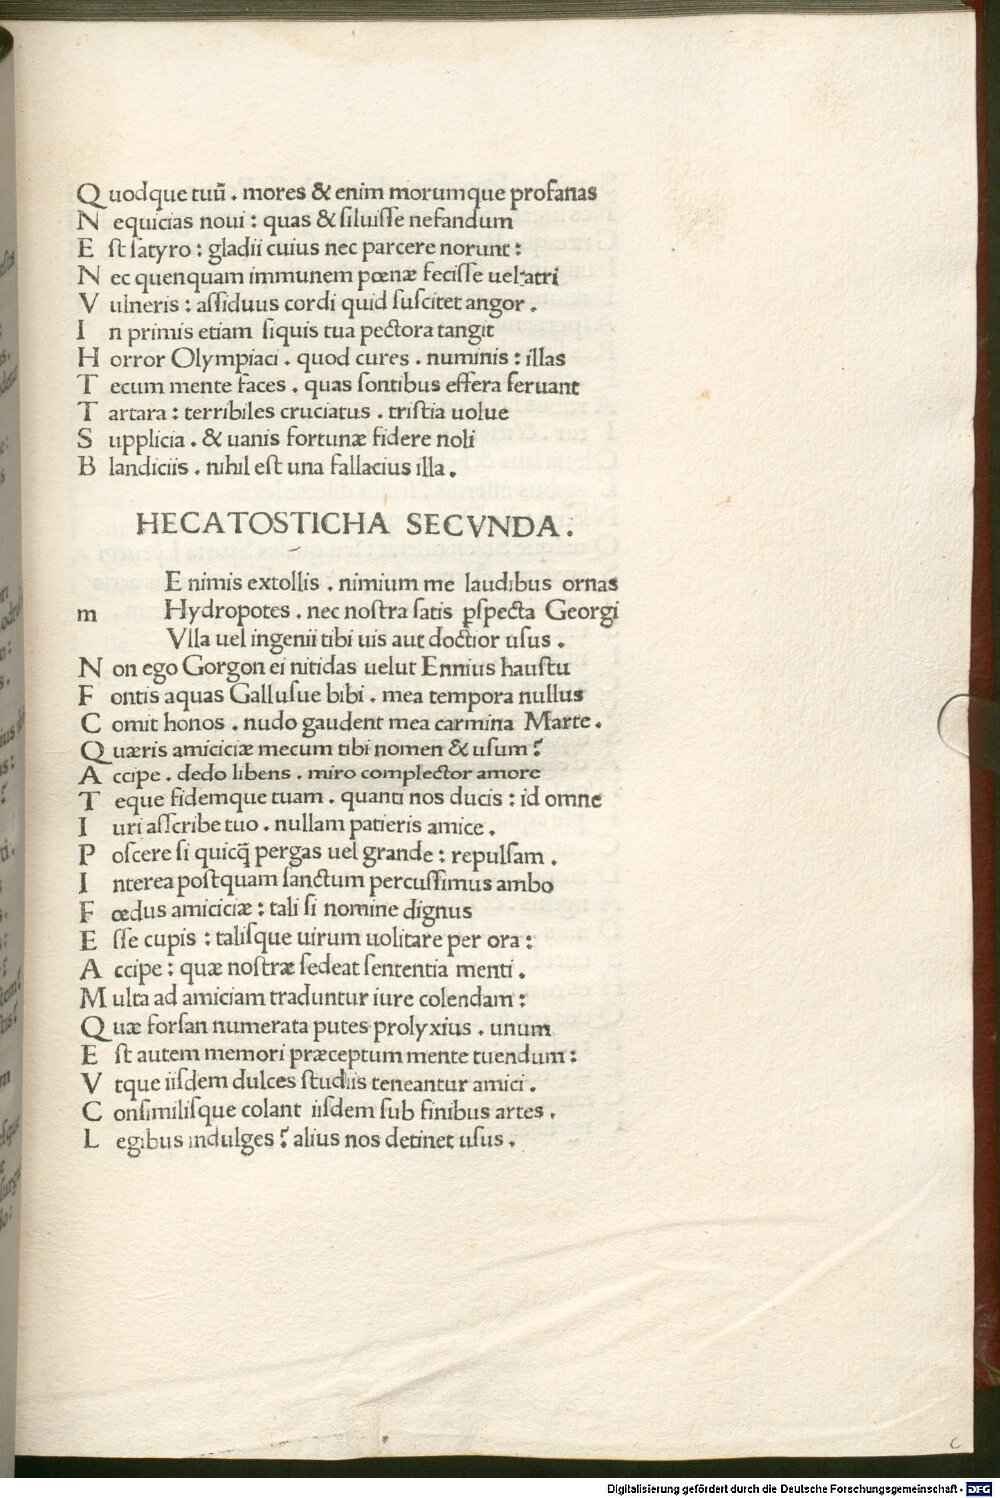 Quodque tuũ . mores & enim morumque profanas
Nequicias noui : quas & siluisse nefandum
Est satyro : gladii cuius nec parcere norunt :
Nec quenquam immunem pœnæ fecisse uel atri
Vulneris : assiduus cordi quid suscitet angor .
In primis etiam siquis tua pectora tangit
Horror Olympiaci . quod cures . numinis : illas
Tecum mente faces . quas sontibus effera seruant
Tartara : terribiles cruciatus . tristia uolue
Supplicia . & uanis fortunæ fidere noli
Blandiciis . nihil est una fallacius illa .
HECATOSTICHA SECVNDA .
E nimis extollis . nimium me laudibus ornas
m Hydropotes . nec nostra satis ꝑspecta Georgi
Vlla uel ingenii tibi uis aut doctior usus .
Non ego Gorgonei nitidas uelut Ennius haustu
Fontis aquas Gallusue bibi . mea tempora nullus
Comit honos . nudo gaudent mea carmina Marte .
Quæris amiciciæ mecum tibi nomen & usum ?
Accipe . dedo libens . miro complector amore
Teque fidemque tuam . quanti nos ducis : id omne
Iuri asscribe tuo . nullam patieris amice .
Poscere si quicq̃ pergas uel grande : repulsam .
Interea postquam sanctum percussimus ambo
Fœdus amiciciæ : tali si nomine dignus
Esse cupis : talisque uirum uolitare per ora :
Accipe : quæ nostræ sedeat sententia menti .
Multa ad amiciam traduntur iure colendam :
Quæ forsan numerata putes prolyxius . unum
Est autem memori præceptum mente tuendum :
Vtque iisdem dulces studiis teneantur amici .
Consimilisque colant iisdem sub finibus artes .
Legibus indulges ? alius nos detinet usus .
Digitalisierung gefördert durch die Deutsche Forschungsgemeinschaft - DFG